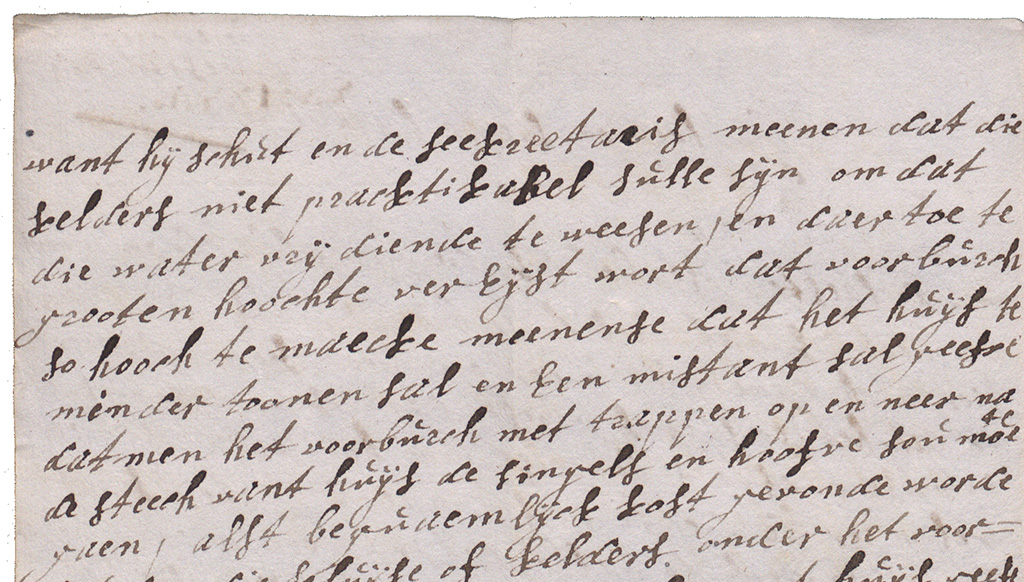 want hÿ schut ende seekreetaris meenen dat die
kelders niet pracktikabel sulle sÿn om dat
die water vrÿ diende te weesen, en daer toe te
grooten hoochte ver Eÿst wort dat voorburch
so hooch te maecke meenense dat het huÿs te
minder toonen sal en Een mistant sal geese
datmen het voorburch met trappen op en neer na
de steech vant huÿs de singels en hoofve sou moete
gaen, alst bequaemlÿck kost gevonde worde
of kelders. onder het voor=